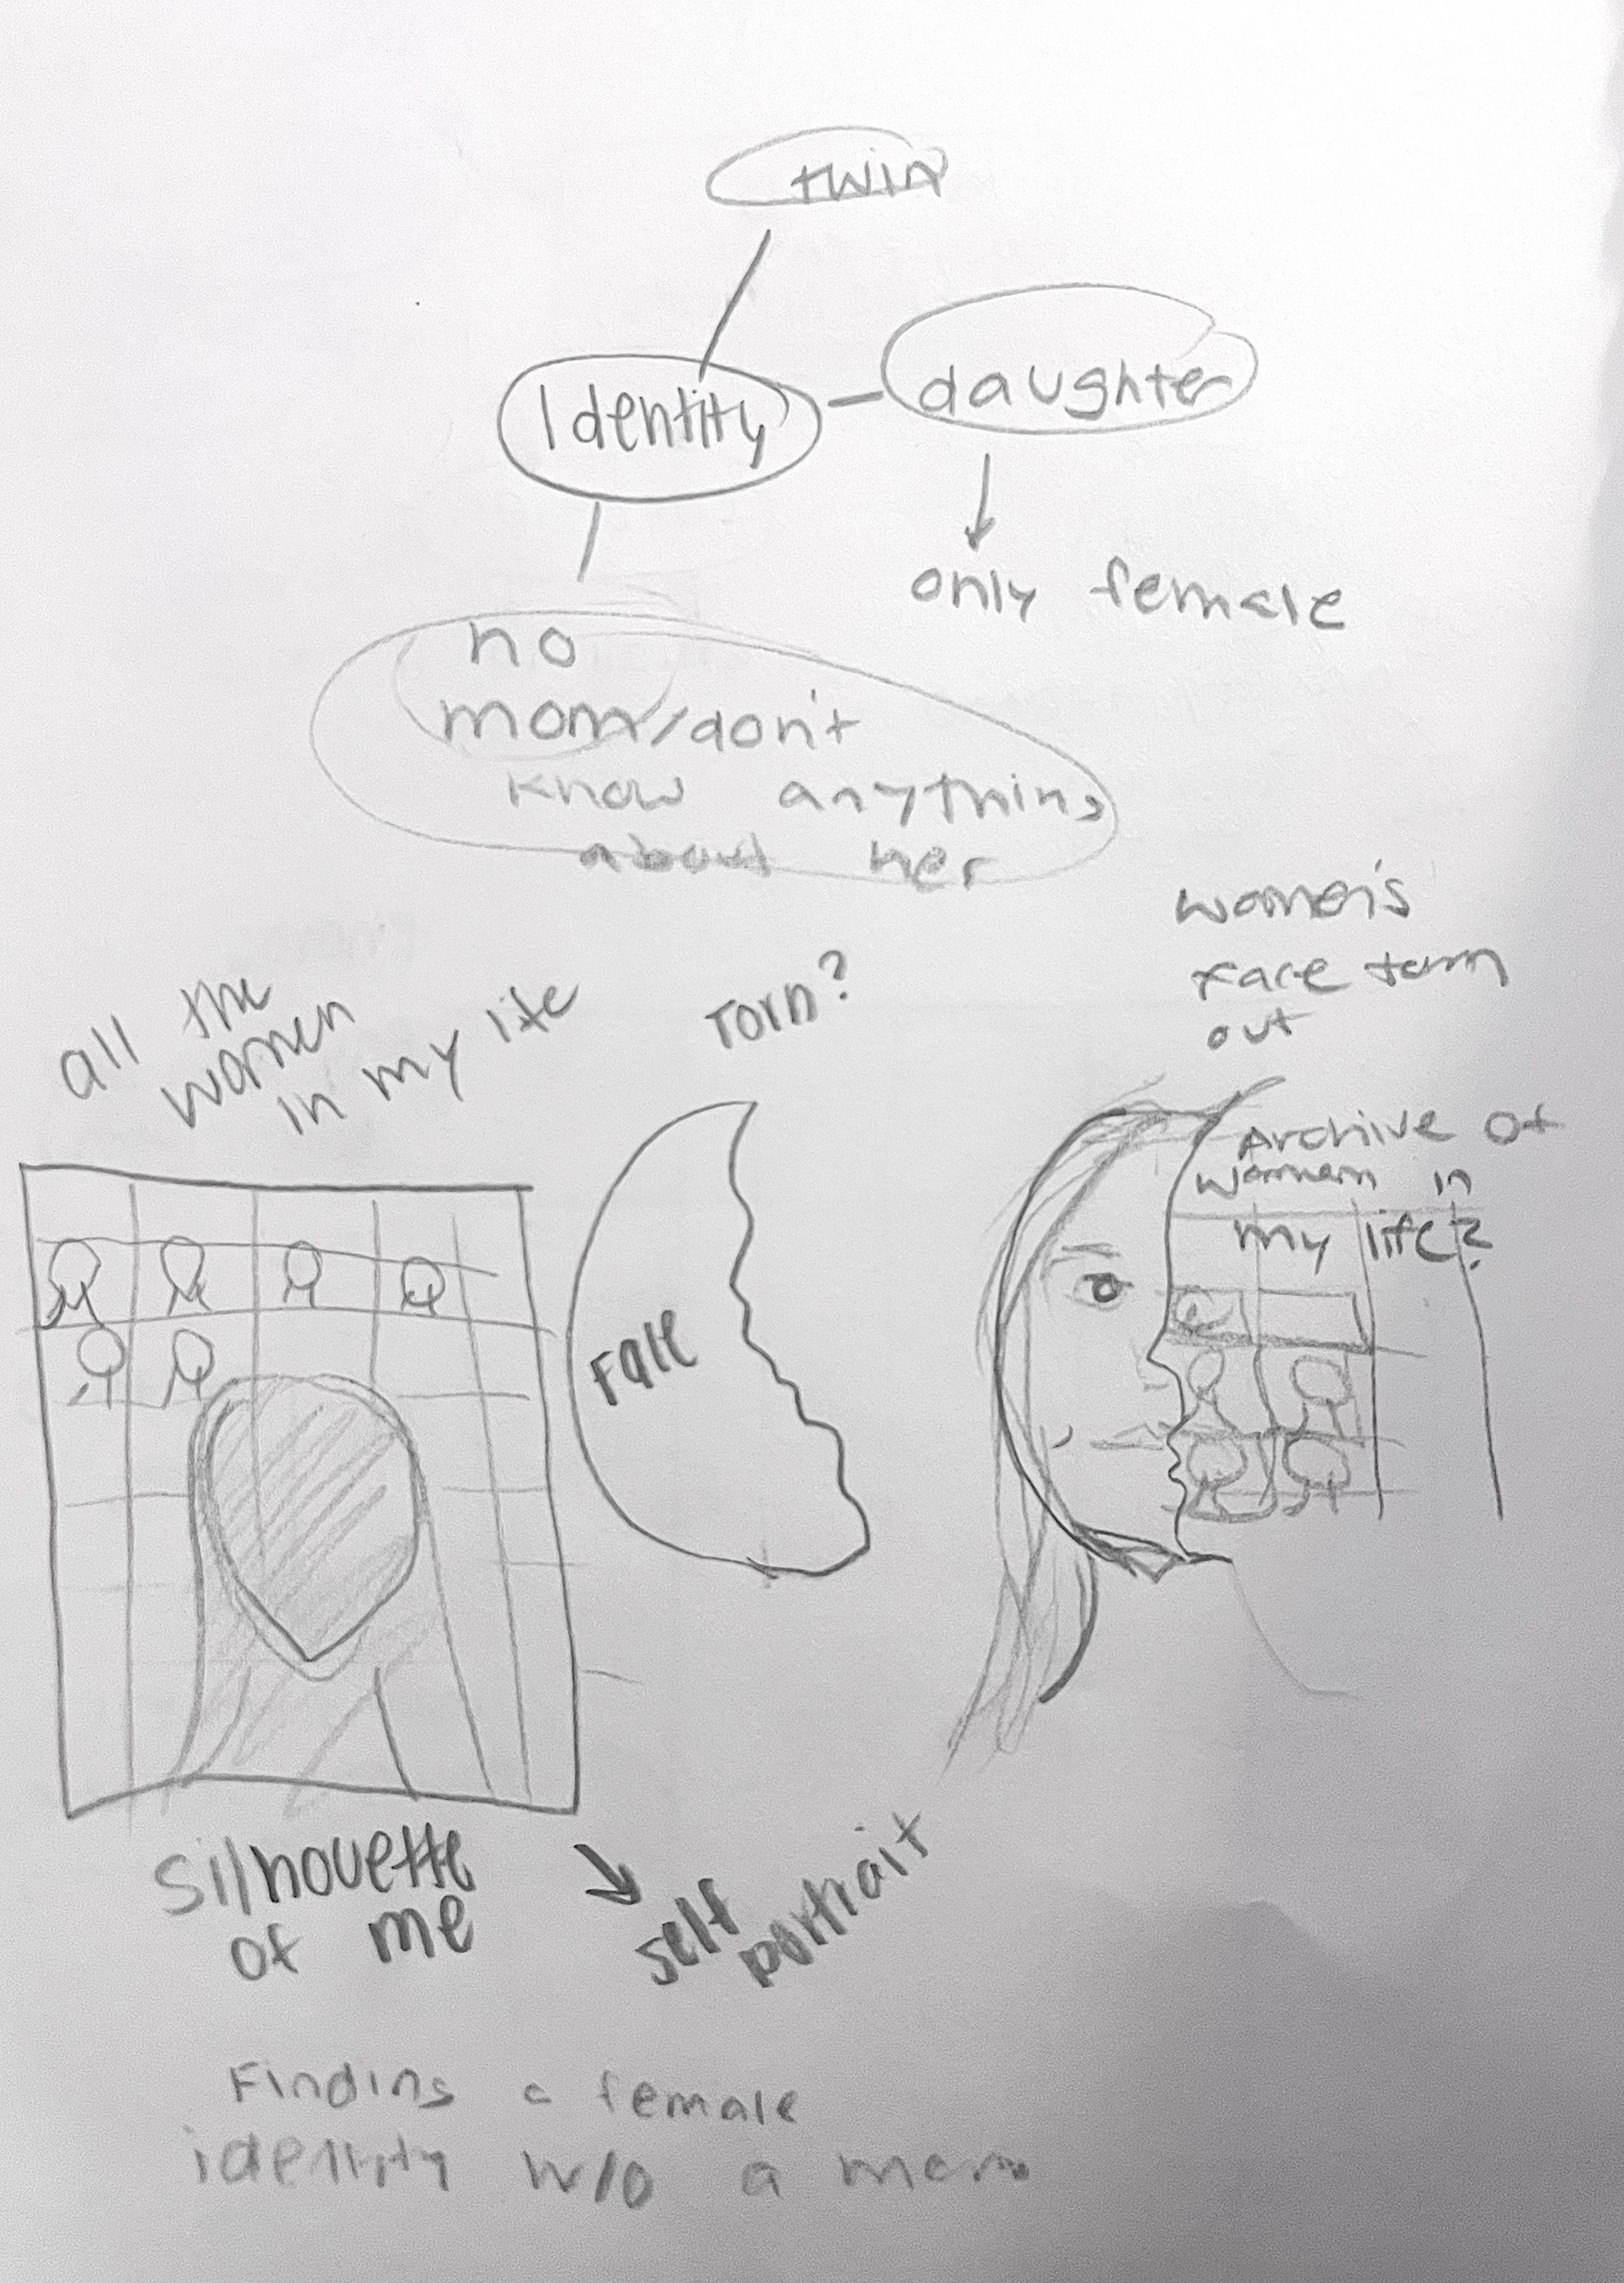 twin
Identity
daughter
only female
no
mom/don't
know anything
about her
women's
face torn
out
all the
women
in my life
Torn?
Archive of
women in
my life?
Face
Silhouette
of me
self
portrait
Finding a female
identity w/o a mom